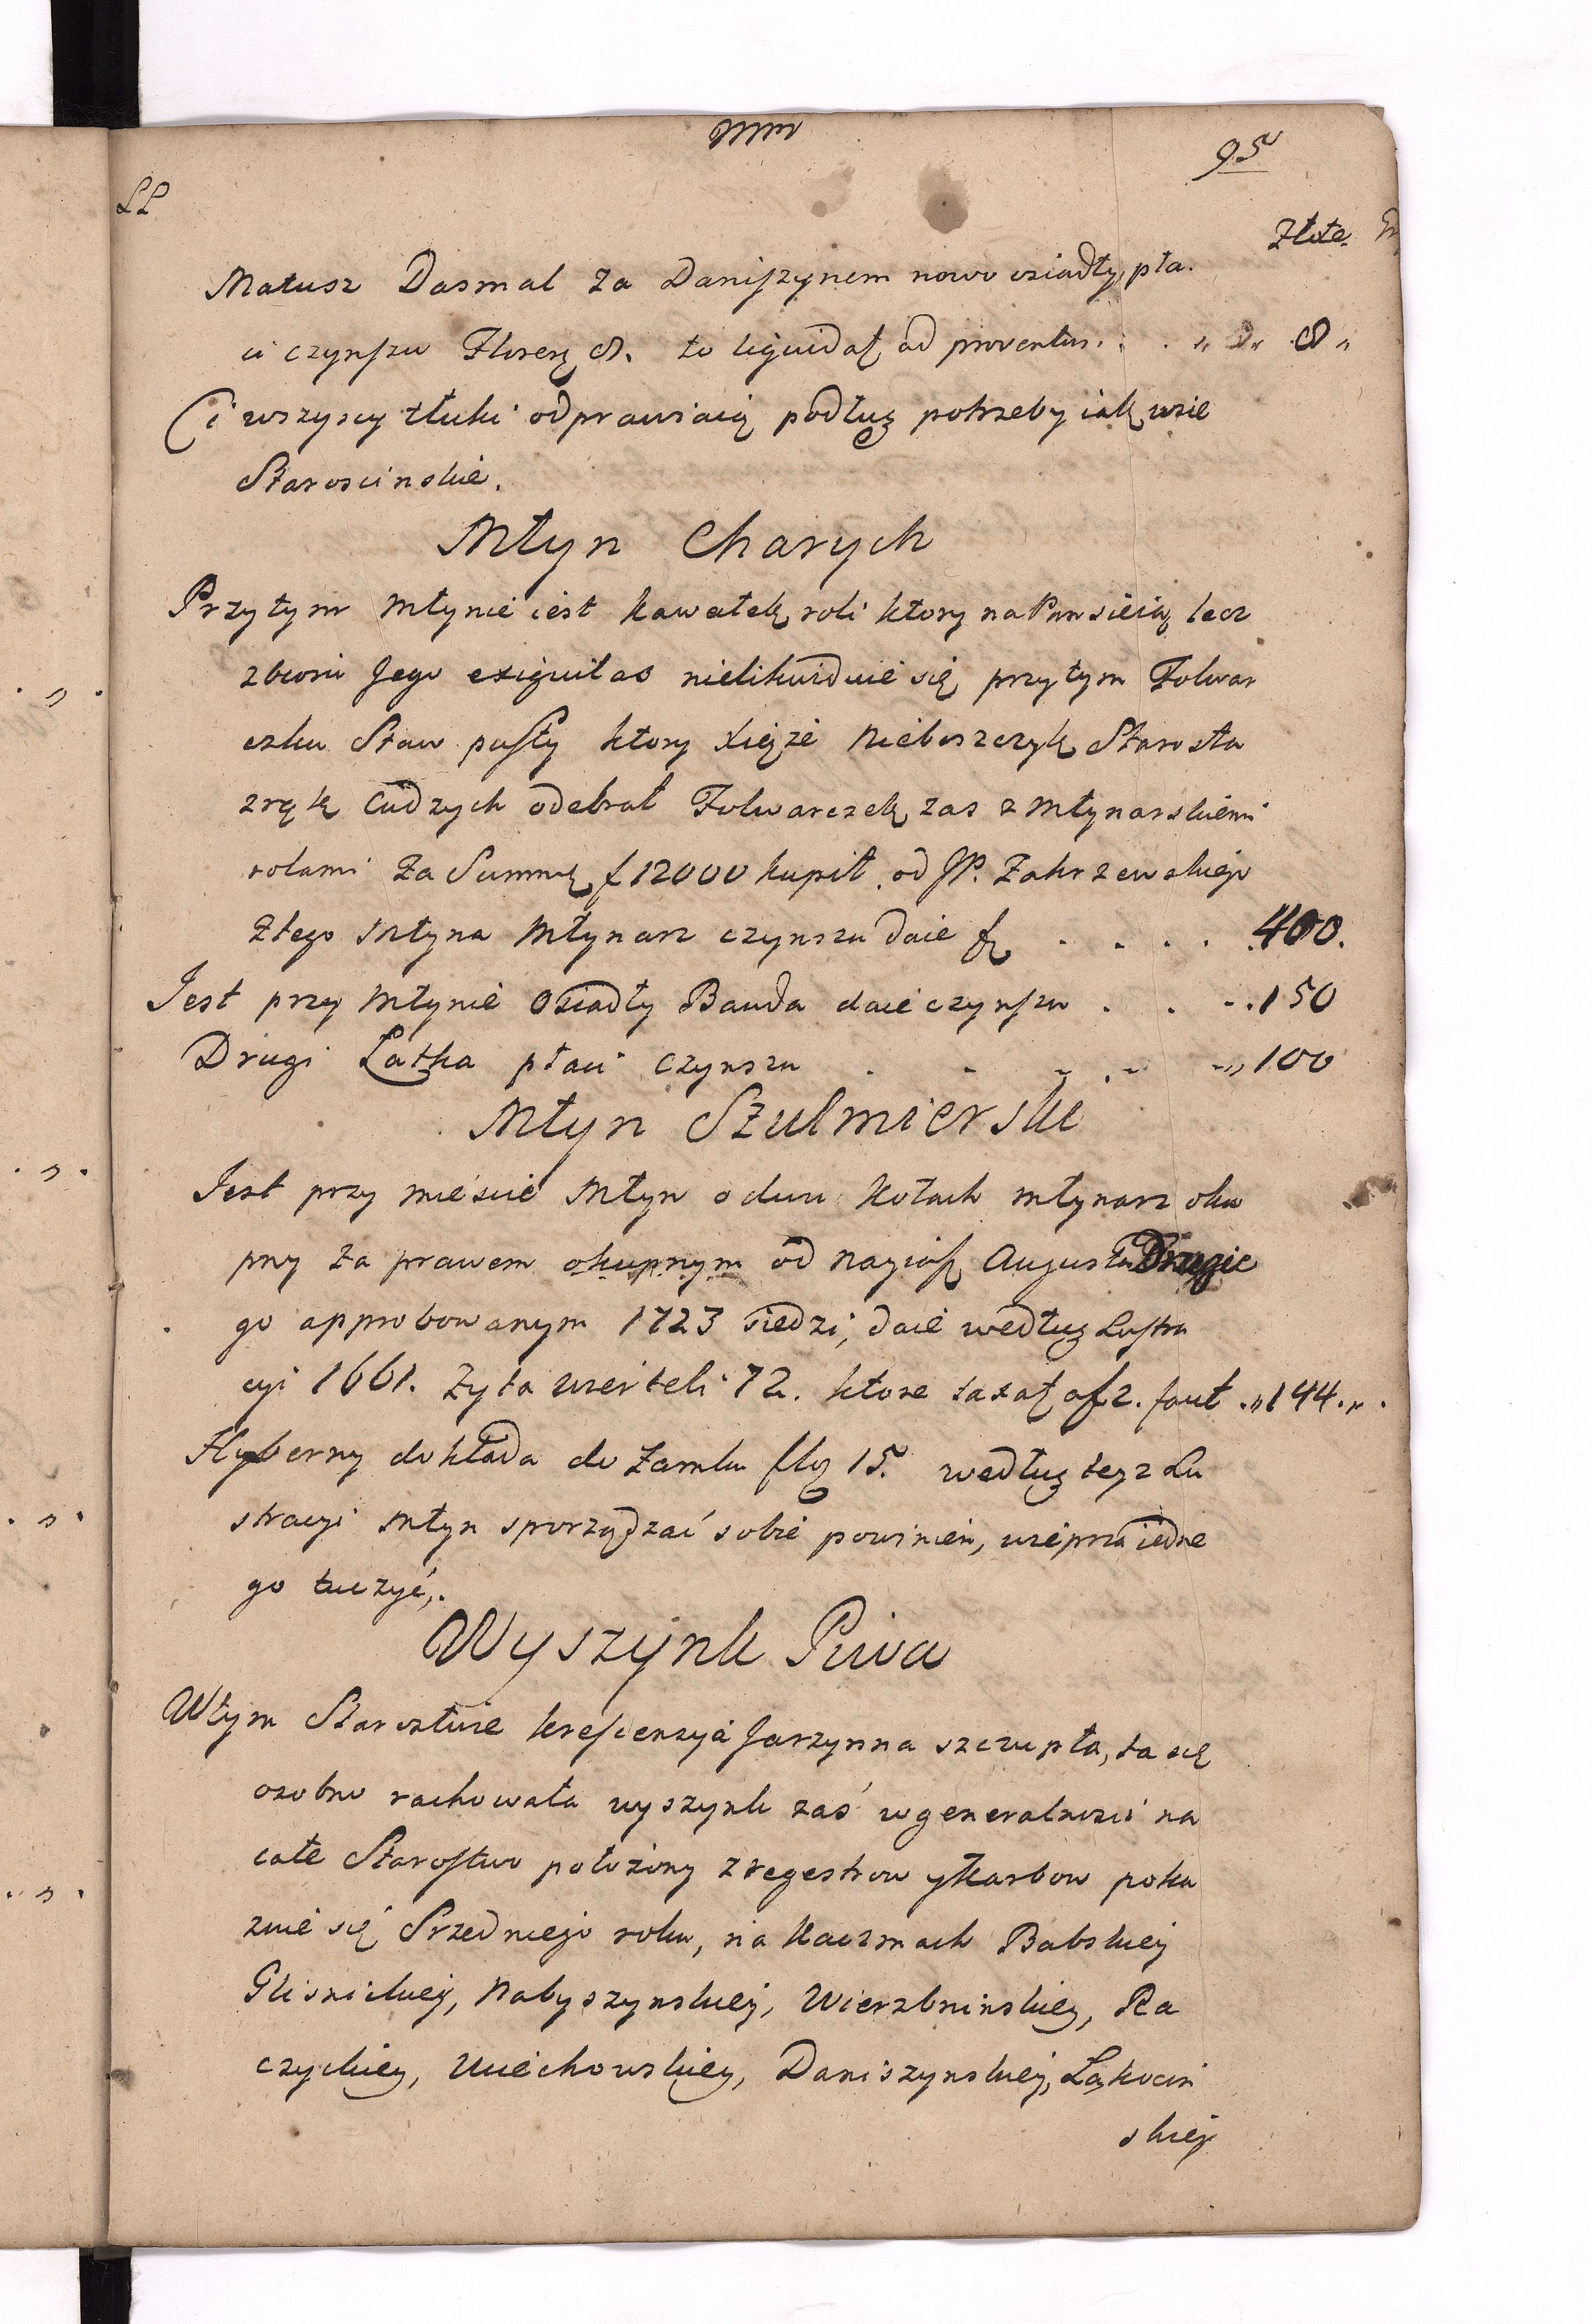 95
LL
Złote. Gr
Matusz Dasmal za Daniszynem nowo osiadły pła.
ci czynszu Floreą 8. to liquidat ad proventus. 8 „
Ci wszyscy tłuki odprawiaią podług potrzeby iak wsie
Staroscinskie.
Młyn Charych
Przytym Młynie iest kawałek roli ktory na Pan sieią, lecz
zbioru Jego exiguitas nielikwiduie się, przytym Folwar
czku Staw pusty ktory także Nieboszczyk Starosta
z rąk Cudzych odebrał Folwarczek zas z Młynarskiemi
rolami za Summę f 12000 kupił od JP. Zakrzewskiego
Ztego Młyna Młynarz czynszu daie f . . . . 400.
Jest przy Młynie Osiadły Bauda daie czynszu . . . 150
Drugi Łatka płaci czynszu . . . . „ 100
Młyn Szulmierski
Jest przy mieście Młyn o dwu Kołach młynarz oku
pny za prawem okupnym od Nayiaś Augusta Drugie
go approbowanym 1723 siedzi, daie według Lustra
cyi 1661. Żyta wierteli 72. ktore taxat a f 2. facit „ 144. „
Hyberny dokłada do Zamku flo 15. według teyz Lu
stracyi Młyn sporządzać sobie powinien, wieprza iedne
go tuczyć,.
Wyszynk Piwa
Wtym Starostwie krescencyia Jarzynna szczupła, ta się
osobno rachowała wyszynk zaś w generalnosci na
całe Starostwo położony z regestrow y Karbow poka
zuie się Srzedniego roku, na Karczmach Babskiey
Gliśnickiey, Nabyszynskiey, Wierzbninskiey, Ra
czyckiey, Uciechowskiey, Daniszynskiey, Łąkocin
skiey